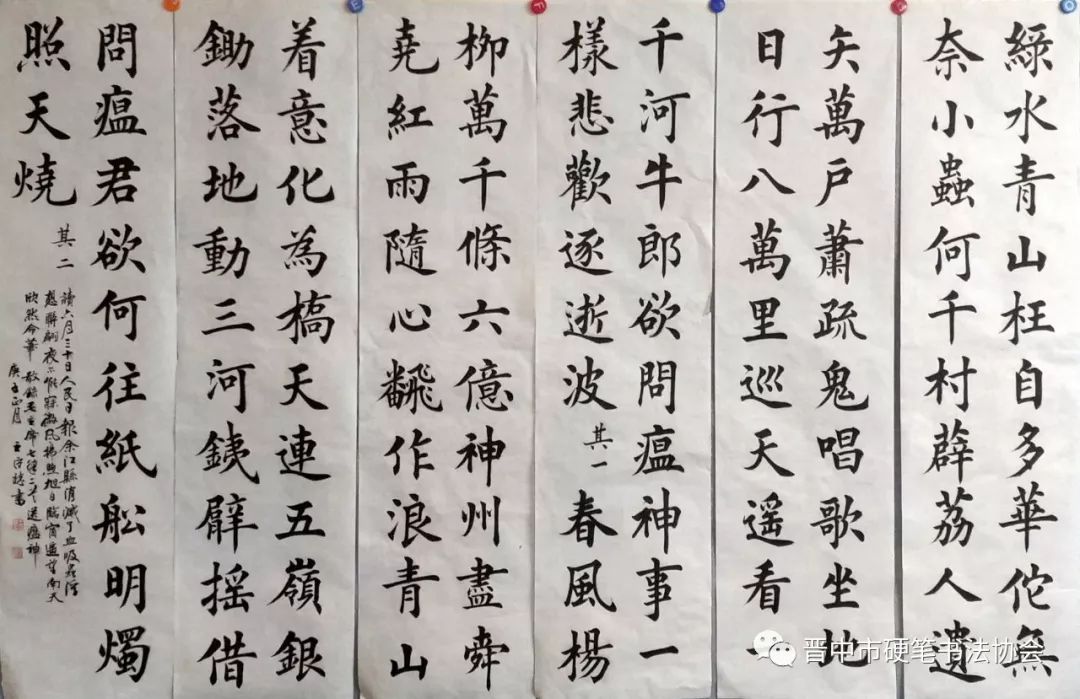 綠水青山枉自多華佗無
奈小蟲何千村薜荔人遺
矢萬戶蕭疏鬼唱歌坐地
日行八萬里巡天遥看一
千河牛郎欲問瘟神事一
樣悲歡逐逝波 其一 春風楊
柳萬千條六億神州盡舜
堯紅雨隨心翻作浪青山
着意化為橋天連五嶺銀
鋤落地動三河鐵臂摇借
問瘟君欲何往紙船明燭
照天燒 其二
讀六月三十日人民日報余江縣消滅了血吸虫浮
想聯翩夜不能寐微風拂煦旭日臨窗遥望南天
欣然命筆 敬錄毛主席七律二首送瘟神
庚子正月 王
晋中市硬笔书法协会